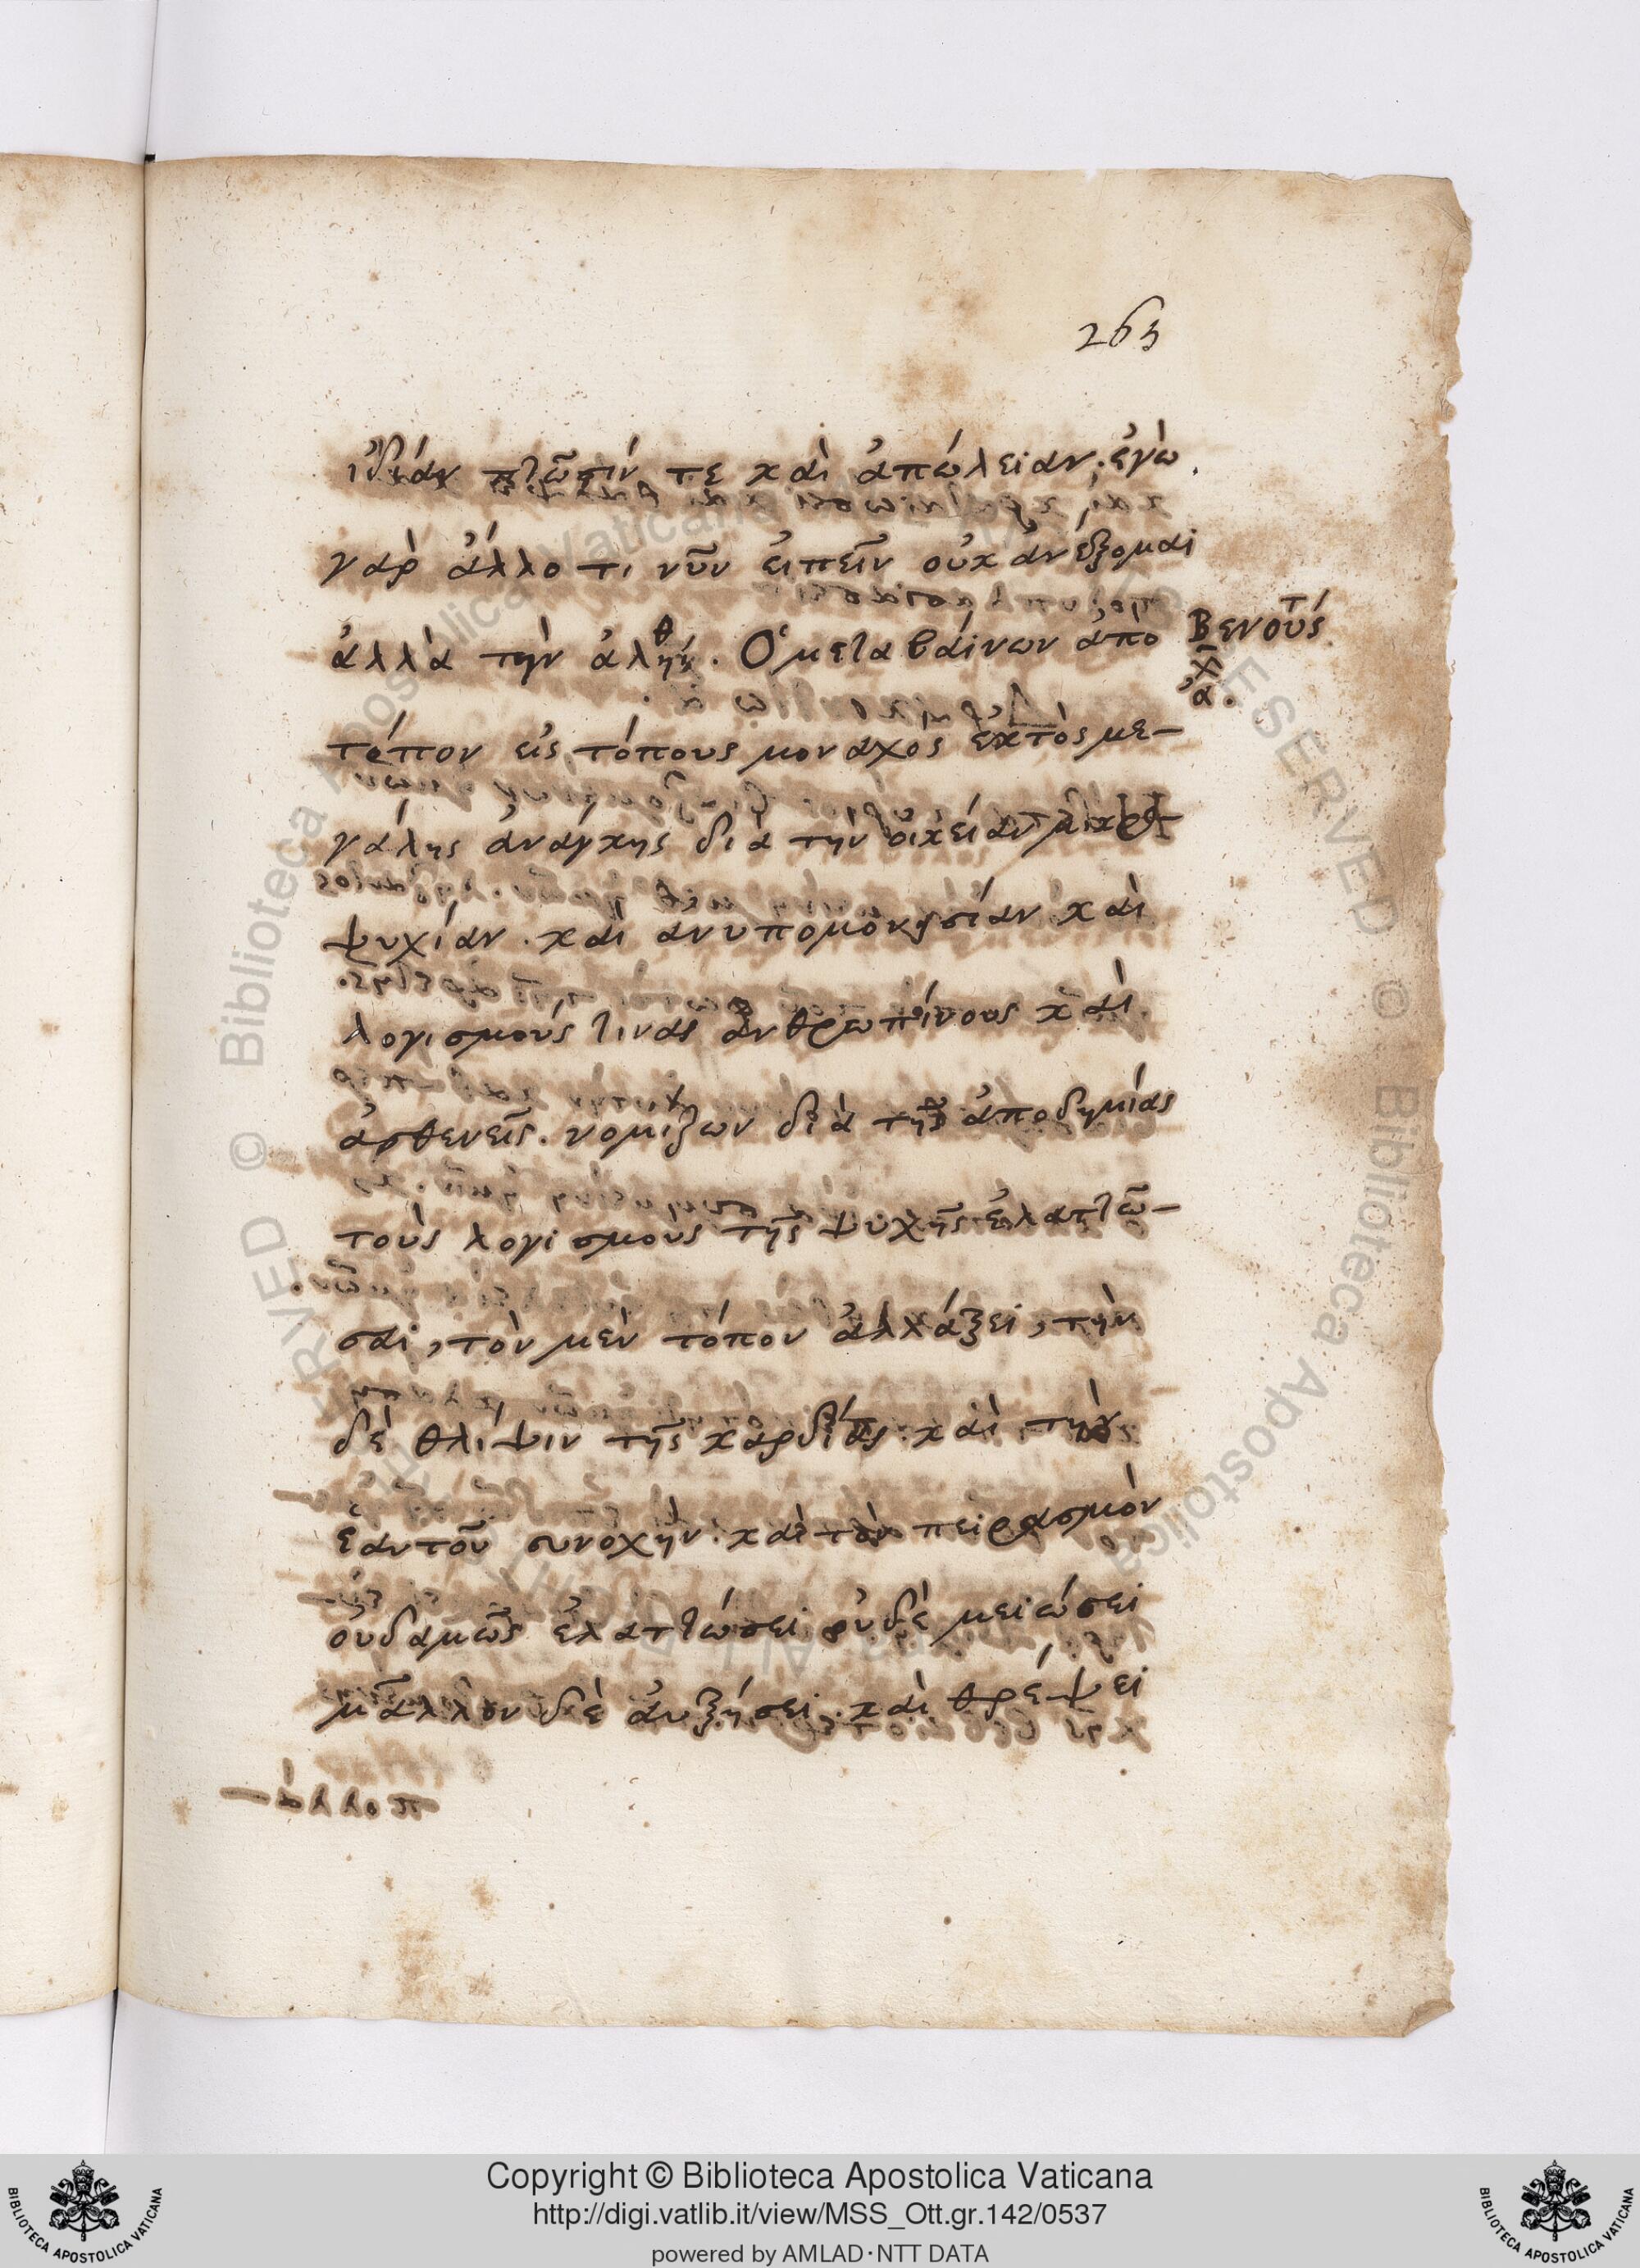 263
ἰδίαν πτῶσιν τε καὶ ἀπώλειαν. ἐγὼ
γὰρ ἄλλο τι νῦν εἰπεῖν οὐκ ἀνέξομαι
ἀλλὰ τὴν ἀληθ. Ὁ μεταβαίνων ἀπὸ
Βενούς
τόπον εἰς τόπους μοναχὸς ἐκτὸς με-
γάλης ἀνάγκης διὰ τὴν οἰκείαν μικρο-
ψυχίαν. καὶ ἀνυπομονησίαν καὶ
λογισμούς τινας ἀνθρωπίνους καὶ
ἀσθενεῖς. νομίζων διὰ τῆς ἀποδημίας
τοὺς λογισμους τῆς ψυχῆς ἐλαττῶ-
σαι, τὸν μὲν τόπον ἀλλάξει, τὴν
δὲ θλίψιν τῆς καρδίας. καὶ τὴν
ἑαυτοῦ συνοχὴν. καὶ τὸν πειρασμὸν
οὐδαμῶς ἐλαττώσει οὐδὲ μειώσει
μᾶλλον δὲ ἀυξήσει. καὶ θρέψει
Copyright © Biblioteca Apostolica Vaticana
http://digi.vatlib.it/view/MSS_Ott.gr.142/0537
powered by AMLAD·NTT DATA
BIBLIOTECA APOSTOLICA VATICANA
BIBLIOTECA APOSTOLICA VATICANA